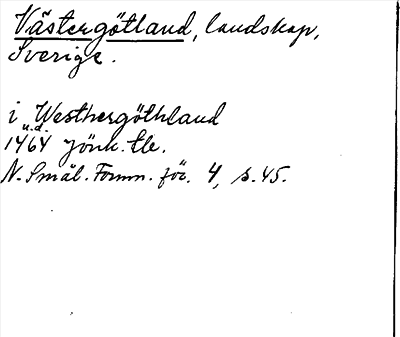 Västergötland, landskap,
Sverige.
i Westhergöthland
u.d.
1464 Jönk. tle.
N. Smål. Fornm. för. 4, s. 45.